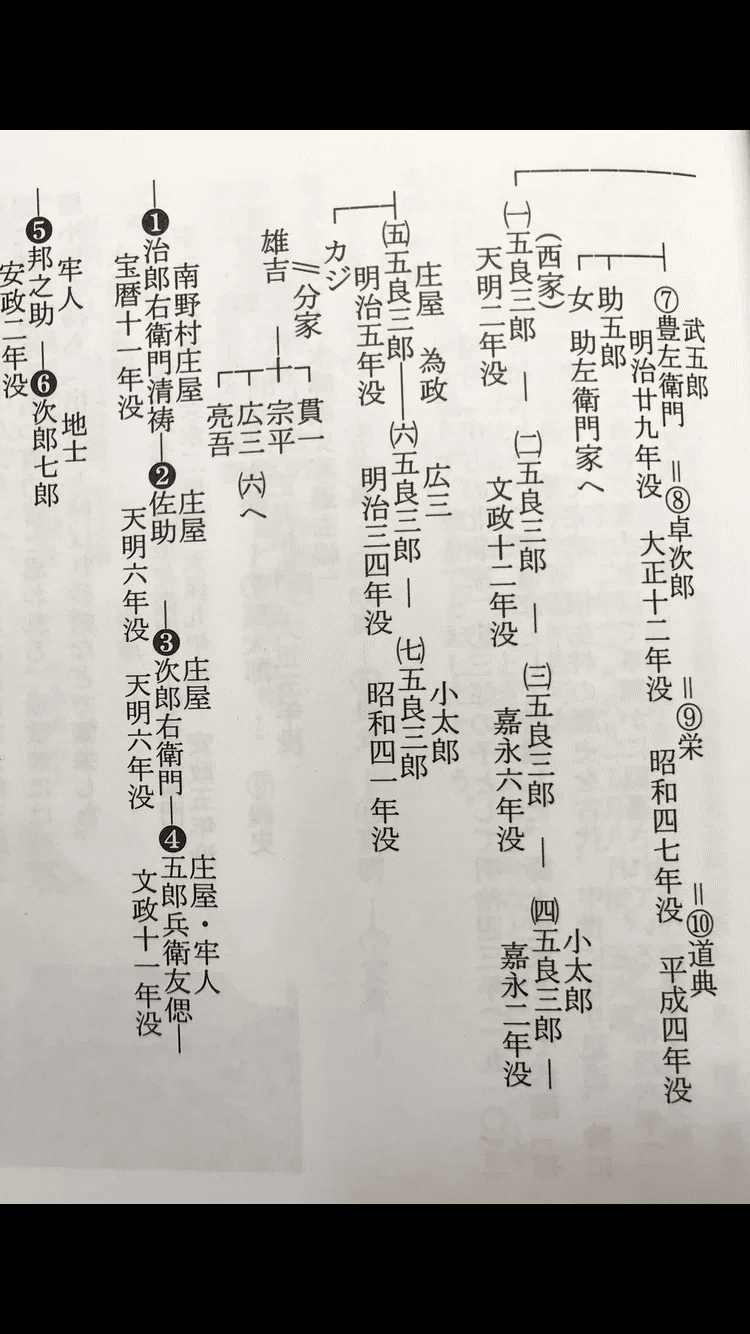 武五郎
⑦豊左衛門
明治廿九年没
＝⑧卓次郎
大正十二年没
＝⑨栄
昭和四七年没
＝⑩道典
平成四年没
助五郎
女 助左衛門家へ
(西家)
㈠五良三郎―
天明二年没
㈡五良三郎―
文政十二年没
㈢五良三郎―
嘉永六年没
小太郎
㈣五良三郎―
嘉永二年没
庄屋 為政
㈤五良三郎―
明治五年没
広三
㈥五良三郎―
明治三四年没
小太郎
㈦五良三郎
昭和四一年没
カジ
＝分家
雄吉
貫一
宗平
広三 ㈥へ
亮吾
南野村庄屋
❶治郎右衛門清祷―
宝暦十一年没
庄屋
❷佐助―
天明六年没
庄屋
❸次郎右衛門―
天明六年没
庄屋・牢人
❹五郎兵衛友偲―
文政十一年没
牢人
❺邦之助―
安政二年没
地士
❻次郎七郎